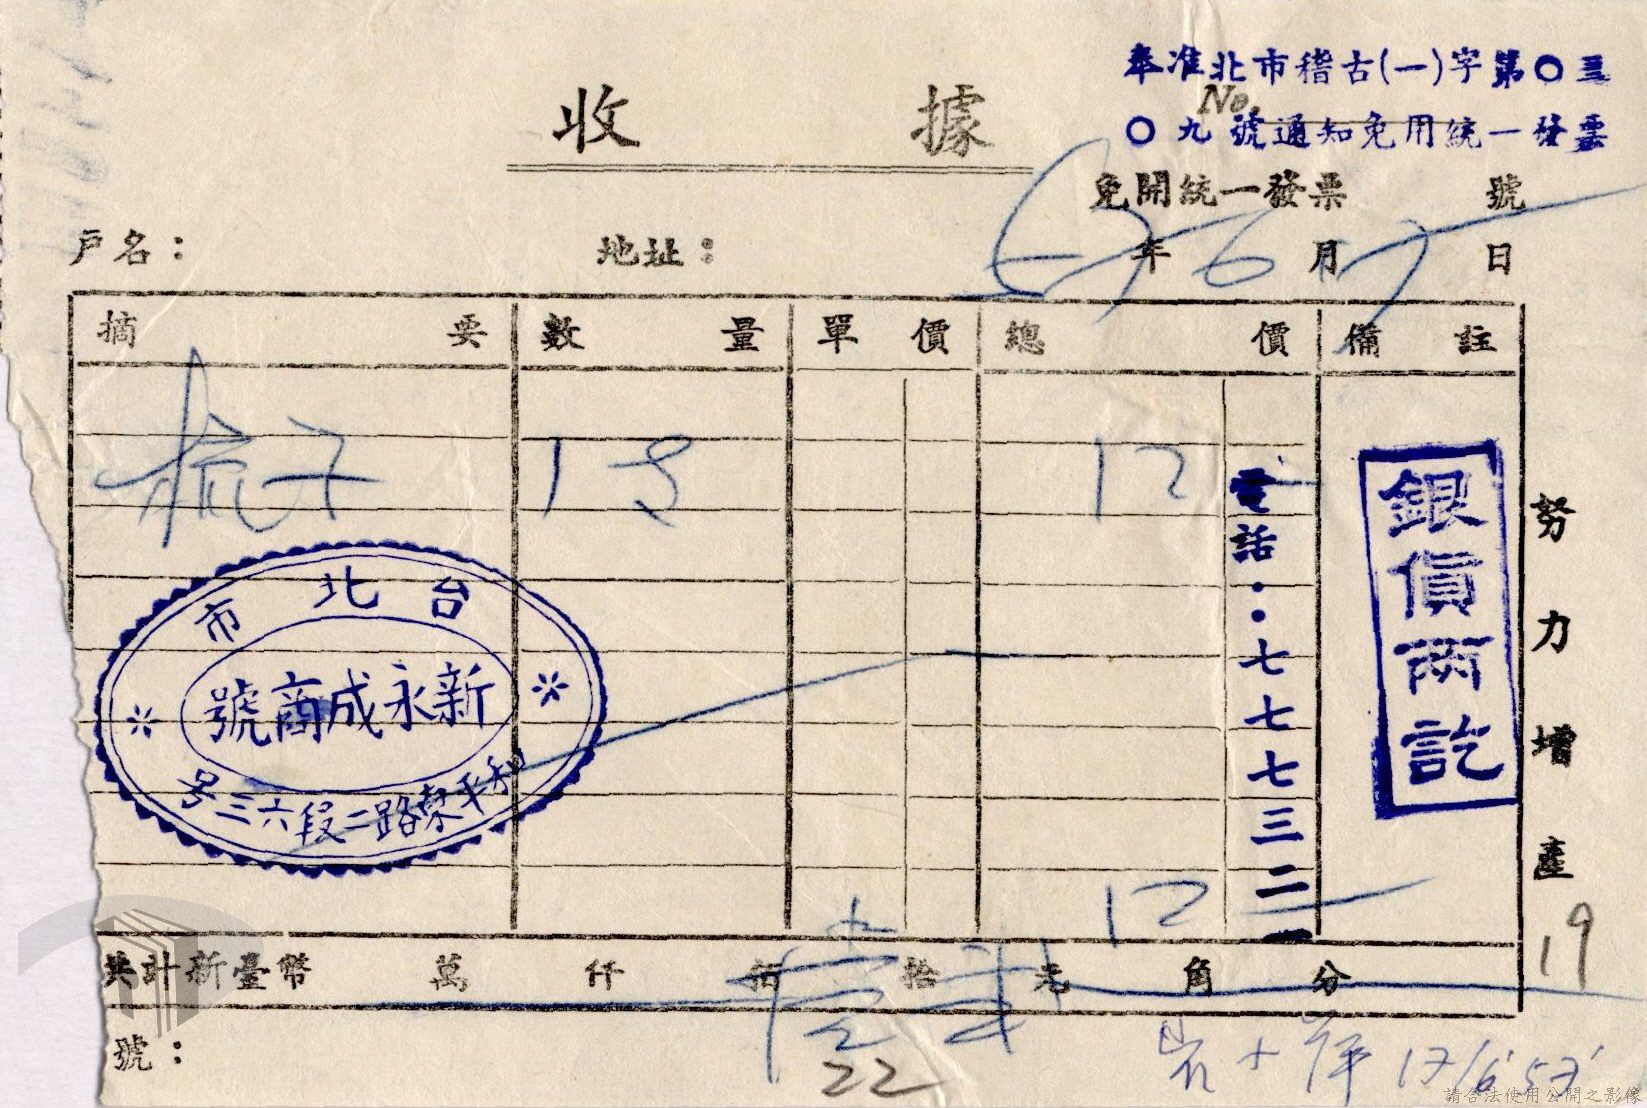 奉准北市稽古(一)字第〇三
〇九號通知免用統一發票
收據
No.
免開統一發票 號
戶名： 地址： 57年6月7日
摘要 數量 單價 總價 備註
梳子 1 12
電話：七七七三二一
銀貨兩訖
台北市
新永成商號
和平東路二段六三号
12
共計新臺幣 萬 仟 佰 壹拾 貳元 角 分
號：
努力增產
19
22
17/6 57
請合法使用公開之影像